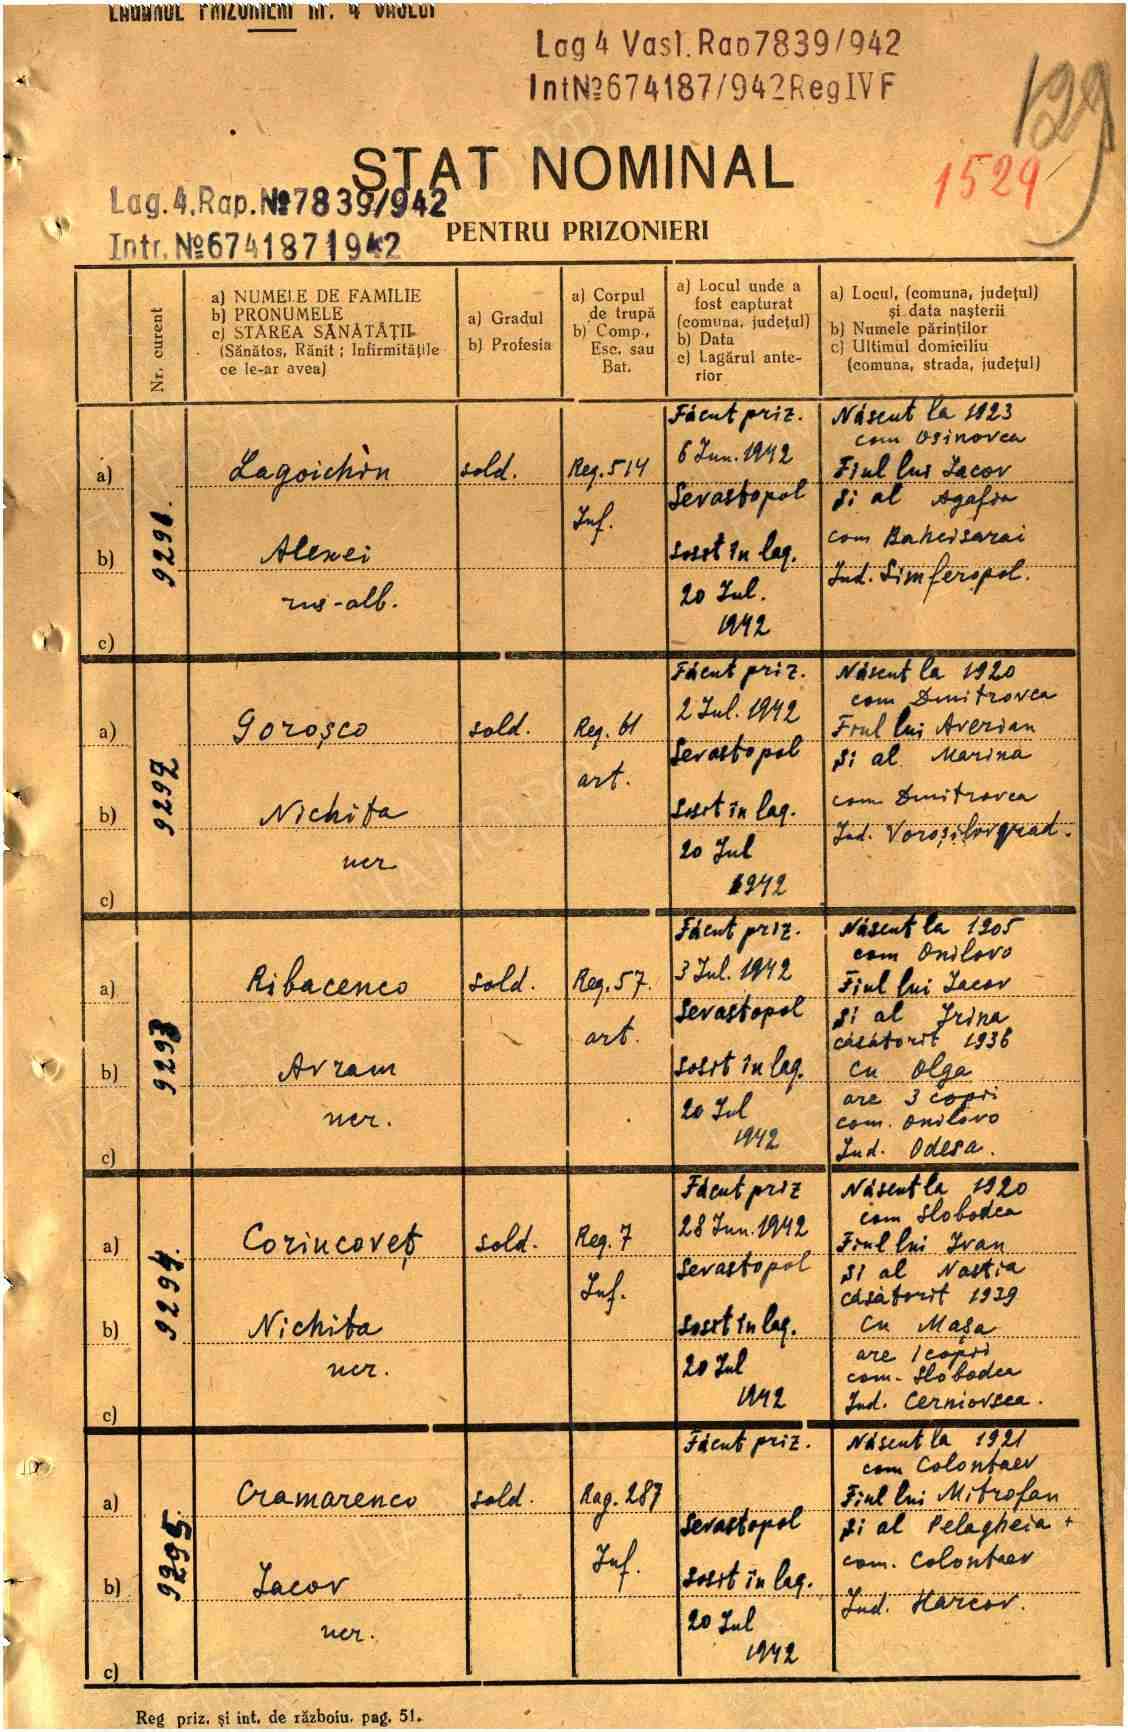 LAGĂRUL PRIZONIERI Nr. 4 VASLUI
Lag 4 Vasl. Rap 7839/942
Int №674187/942 Reg IV F
129
1529
STAT NOMINAL
Lag. 4. Rap. №7839/942
PENTRU PRIZONIERI
Intr. №674187 1942
Nr. curent
a) NUMELE DE FAMILIE
b) PRONUMELE
c) STAREA SĂNĂTĂȚII
(Sănătos, Rănit ; Infirmitățile
ce le-ar avea)
a) Gradul
b) Profesia
a) Corpul
de trupă
b) Comp.,
Esc. sau
Bat.
a) Locul unde a
fost capturat
(comuna, județul)
b) Data
c) Lagărul ante-
rior
a) Locul, (comuna, județul)
și data nașterii
b) Numele părinților
c) Ultimul domiciliu
(comuna, strada, județul)
9291.
a) Lagoichin
b) Alexei
rus-alb.
c)
sold.
Reg. 514
Inf.
Făcut priz.
6 Iun. 1942
Sevastopol
Sosit în lag.
20 Iul.
1942
Născut la 1923
com Osinovca
Fiul lui Iacov
Și al Agafia
com Bahcisarai
Jud. Simferopol.
9292
a) Goroșco
b) Nichita
ucr
c)
sold.
Reg. 61
art.
Făcut priz.
2 Iul. 1942
Sevastopol
Sosit în lag.
20 Iul
1942
Născut la 1920
com Dmitrovca
Fiul lui Averian
Și al Marina
com Dmitrovca
Jud. Voroșilovgrad.
9293
a) Ribacenco
b) Avram
ucr.
c)
sold.
Reg. 57.
art.
Făcut priz.
3 Iul. 1942
Sevastopol
Sosit în lag.
20 Iul
1942
Născut la 1905
com Onilovo
Fiul lui Iacov
Și al Irina
căsătorit 1936
cu Olga
are 3 copii
com. Onilovo
Jud. Odesa.
9294.
a) Corincoveț
b) Nichita
ucr.
c)
sold.
Reg. 7
Inf.
Făcut priz
28 Iun. 1942
Sevastopol
Sosit în lag.
20 Iul
1942
Născut la 1920
com Slobodca
Fiul lui Ivan
Și al Nastia
căsătorit 1939
cu Mașa
are 1 copii
com. Slobodca
Jud. Cerniovsca.
9295.
a) Cramarenco
b) Iacov
ucr.
c)
sold.
Rag. 287
Inf.
Făcut priz.
Sevastopol
Sosit în lag.
20 Iul
1942
Născut la 1921
com Colontaev
Fiul lui Mitrofan
Și al Pelagheia +
com. Colontaev
Jud. Harcov.
Reg priz. și int. de războiu. pag. 51.